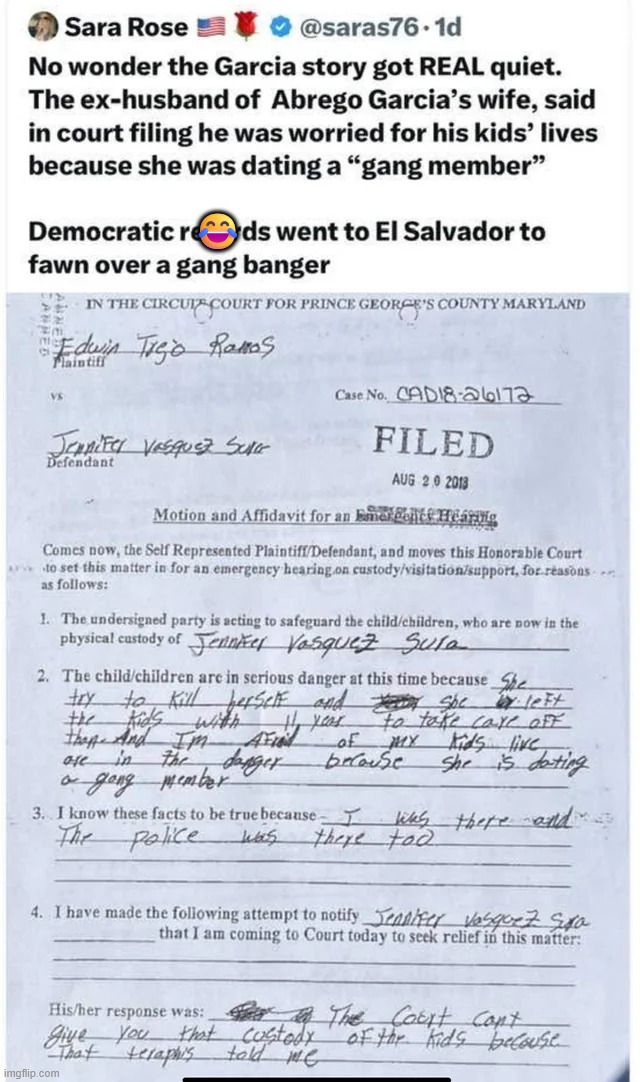 Sara Rose 🇺🇸 🌹 @saras76 · 1d
No wonder the Garcia story got REAL quiet.
The ex-husband of Abrego Garcia’s wife, said
in court filing he was worried for his kids’ lives
because she was dating a “gang member”
Democratic re😂ds went to El Salvador to
fawn over a gang banger
IN THE CIRCUIT COURT FOR PRINCE GEORGE'S COUNTY MARYLAND
Edwin Trejo Ramos
Plaintiff
vs
Case No. CAD18-26172
Jennifer Vasquez Sura
Defendant
FILED
AUG 20 2018
Motion and Affidavit for an Emergency Hearing
Comes now, the Self Represented Plaintiff/Defendant, and moves this Honorable Court
to set this matter in for an emergency hearing on custody/visitation/support, for reasons
as follows:
1. The undersigned party is acting to safeguard the child/children, who are now in the
physical custody of Jennifer Vasquez Sura
2. The child/children are in serious danger at this time because She
try to Kill herself and she left
the kids with 11 year to take care off
them. And I'm Afraid of my kids live
are in the danger because she is dating
a gang member
3. I know these facts to be true because I was there and
The police was there too
4. I have made the following attempt to notify Jennifer Vasquez Sura
that I am coming to Court today to seek relief in this matter:
His/her response was: The Court cant
give you that custody of the kids because
that teraphis told me
imgflip.com